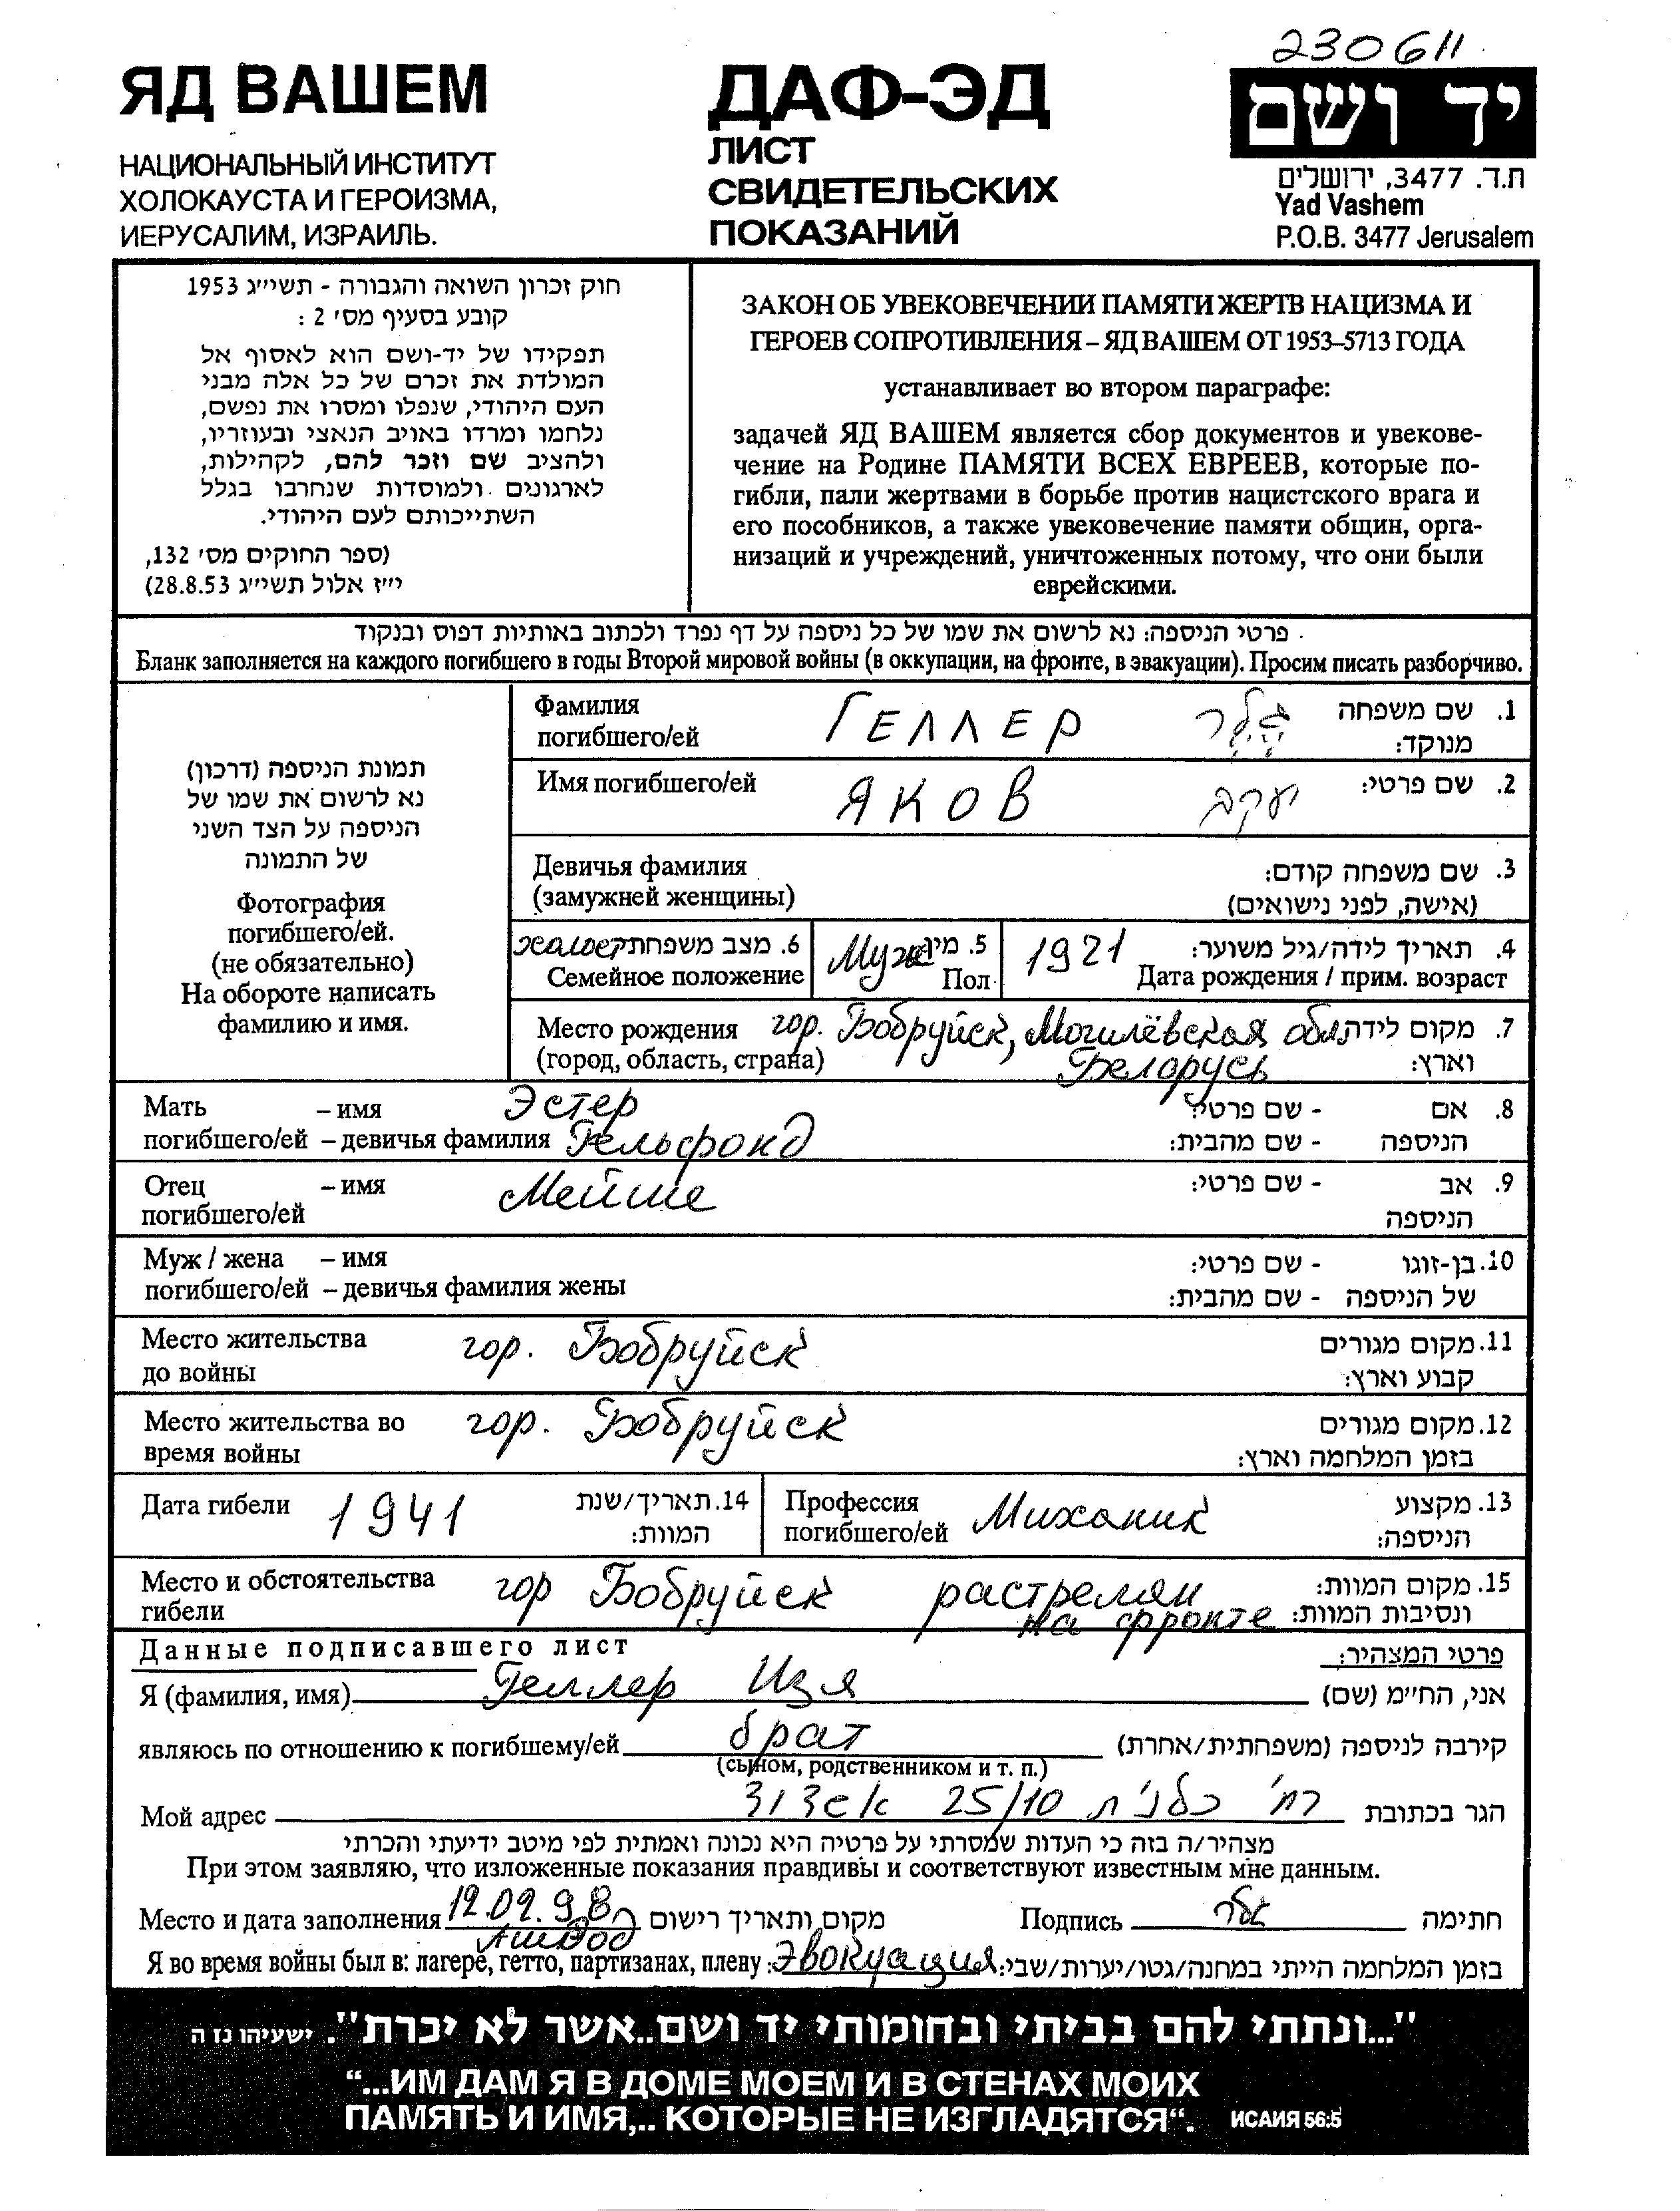 230611
ЯД ВАШЕМ
НАЦИОНАЛЬНЫЙ ИНСТИТУТ
ХОЛОКАУСТА И ГЕРОИЗМА,
ИЕРУСАЛИМ, ИЗРАИЛЬ.
ДАФ-ЭД
ЛИСТ
СВИДЕТЕЛЬСКИХ
ПОКАЗАНИЙ
יד ושם
ת.ד. 3477, ירושלים
Yad Vashem
P.O.B. 3477 Jerusalem
חוק זכרון השואה והגבורה - תשי״ג 1953
קובע בסעיף מס׳ 2 :
תפקידו של יד-ושם הוא לאסוף אל
המולדת את זכרם של כל אלה מבני
העם היהודי, שנפלו ומסרו את נפשם,
נלחמו ומרדו באויב הנאצי ובעוזריו,
ולהציב שם וזכר להם, לקהילות,
לארגונים ולמוסדות שנחרבו בגלל
השתייכותם לעם היהודי.
(ספר החוקים מס׳ 132,
י״ז אלול תשי״ג 28.8.53)
ЗАКОН ОБ УВЕКОВЕЧЕНИИ ПАМЯТИ ЖЕРТВ НАЦИЗМА И
ГЕРОЕВ СОПРОТИВЛЕНИЯ – ЯД ВАШЕМ ОТ 1953–5713 ГОДА
устанавливает во втором параграфе:
задачей ЯД ВАШЕМ является сбор документов и увекове-
чение на Родине ПАМЯТИ ВСЕХ ЕВРЕЕВ, которые по-
гибли, пали жертвами в борьбе против нацистского врага и
его пособников, а также увековечение памяти общин, орга-
низаций и учреждений, уничтоженных потому, что они были
еврейскими.
פרטי הניספה: נא לרשום את שמו של כל ניספה על דף נפרד ולכתוב באותיות דפוס ובנקוד
Бланк заполняется на каждого погибшего в годы Второй мировой войны (в оккупации, на фронте, в эвакуации). Просим писать разборчиво.
תמונת הניספה (דרכון)
נא לרשום את שמו של
הניספה על הצד השני
של התמונה
Фотография
погибшего/ей.
(не обязательно)
На обороте написать
фамилию и имя.
Фамилия ГЕЛЛЕР גלר 1. שם משפחה
погибшего/ей מנוקד:
Имя погибшего/ей ЯКОВ יעקב 2. שם פרטי:
Девичья фамилия 3. שם משפחה קודם:
(замужней женщины) (אישה, לפני נישואים)
холост 6. מצב משפחתי Муж 5. מין 1921 4. תאריך לידה/גיל משוער:
Семейное положение Пол Дата рождения / прим. возраст
Место рождения гор. Бобруйск, Могилёвская обл, 7. מקום לידה
(город, область, страна) Беларусь וארץ:
Мать – имя Эстер 8. אם - שם פרטי:
погибшего/ей – девичья фамилия Гельфонд הניספה - שם מהבית:
Отец – имя Мейше 9. אב - שם פרטי:
погибшего/ей הניספה
Муж / жена – имя 10. בן-זוגו - שם פרטי:
погибшего/ей – девичья фамилия жены של הניספה - שם מהבית:
Место жительства гор. Бобруйск 11. מקום מגורים
до войны קבוע וארץ:
Место жительства во гор. Бобруйск 12. מקום מגורים
время войны בזמן המלחמה וארץ:
Дата гибели 1941 14. תאריך/שנת המוות:
Профессия Миханик 13. מקצוע
погибшего/ей הניספה:
Место и обстоятельства гор Бобруйск растрелян 15. מקום המוות:
гибели на фронте ונסיבות המוות:
Данные подписавшего лист פרטי המצהיר:
Я (фамилия, имя) Геллер Изя אני, הח״מ (שם)
являюсь по отношению к погибшему/ей брат קירבה לניספה (משפחתית/אחרת)
(сыном, родственником и т. п.)
Мой адрес רח׳ כלנית 25/10 אשדוד הגר בכתובת
מצהיר/ה בזה כי העדות שמסרתי על פרטיה היא נכונה ואמתית לפי מיטב ידיעתי והכרתי
При этом заявляю, что изложенные показания правдивы и соответствуют известным мне данным.
Место и дата заполнения 12.02.98 מקום ותאריך רישום Подпись גלר חתימה
Ашдод
Я во время войны был в: лагере, гетто, партизанах, плену: Эвокуация בזמן המלחמה הייתי במחנה/גטו/יערות/שבי:
"...ונתתי להם בביתי ובחומותי יד ושם..אשר לא יכרת". ישעיהו נו ה
“...ИМ ДАМ Я В ДОМЕ МОЕМ И В СТЕНАХ МОИХ
ПАМЯТЬ И ИМЯ,.. КОТОРЫЕ НЕ ИЗГЛАДЯТСЯ“. ИСАИЯ 56:5